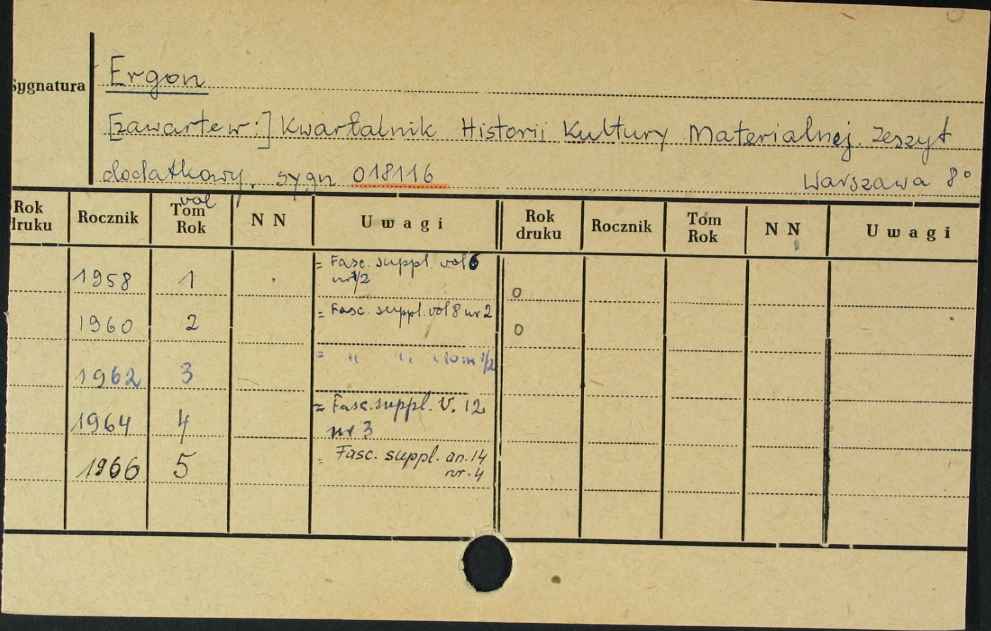 Sygnatura
Ergon
[zawarte w:] Kwartalnik Historii Kultury Materialnej. Zeszyt
dodatkowy. sygn 018116 Warszawa 8°
Rok druku Rocznik vol Tom Rok N N Uwagi Rok druku Rocznik Tom Rok N N Uwagi
1958 1 = Fasc. suppl. vol 6
nr 1/2
o
1960 2 = Fasc. suppl. vol 8 nr 2
o
1962 3 = " " 1/2
1964 4 = Fasc. suppl. V. 12
nr 3
1966 5 = Fasc. suppl. an. 14
nr. 4